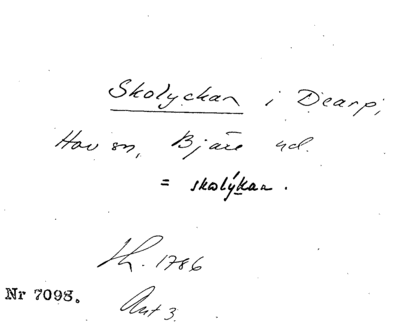 Skolyckan i Dearp,
Hov sn, Bjäre hd.
= skolýkan.
Lh. 1786
Nr 7098.
Ant 3.